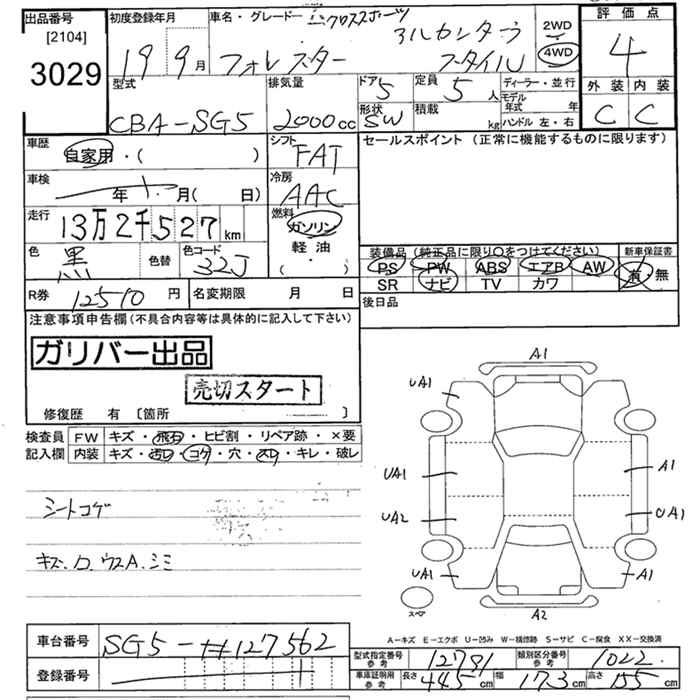 出品番号 [2104] 3029
初度登録年月 19 9月
車名・グレード クロススポーツ フォレスター アルカンターラ スタイル
2WD 4WD
評価点 4
外装 内装
C C
型式 CBA-SG5
排気量 2000cc
ドア 5
形状 SW
定員 5人
積載 kg
ディーラー・並行
モデル年式 年
ハンドル 左・右
車歴 自家用・( )
シフト FAT
セールスポイント (正常に機能するものに限ります)
車検 年 月(日)
冷房 AAC
走行 13万2千527km
燃料 ガソリン 軽・油 (・)
色 黒 色替 色コード 32J
装備品 (純正品に限り○をつけてください) 新車保証書
PS PW ABS エアB AW 有・無
SR ナビ TV カワ
R券 12510円 名変期限 月 日
後日品
注意事項申告欄(不具合内容等は具体的に記入して下さい)
ガリバー出品
売切スタート
修復歴 有 〔箇所 〕
検査員 FW キズ・飛石・ヒビ割・リペア跡・×要
記入欄 内装 キズ・汚レ・コゲ・穴・スレ・キレ・破レ
シートコゲ
キズ.ロ.ウスA.シミ
A1
UA1
UA1 A1
UA2 UA1
UA1 A1
スペア
A2
A-キズ E-エクボ U-凹み W-補修跡 S-サビ C-腐食 XX-交換済
車台番号 SG5-#127562
登録番号
型式指定番号 参考 12791 類別区分番号 参考 1022
車庫証明用 参考 長さ 445cm 幅 173cm 高さ 155cm